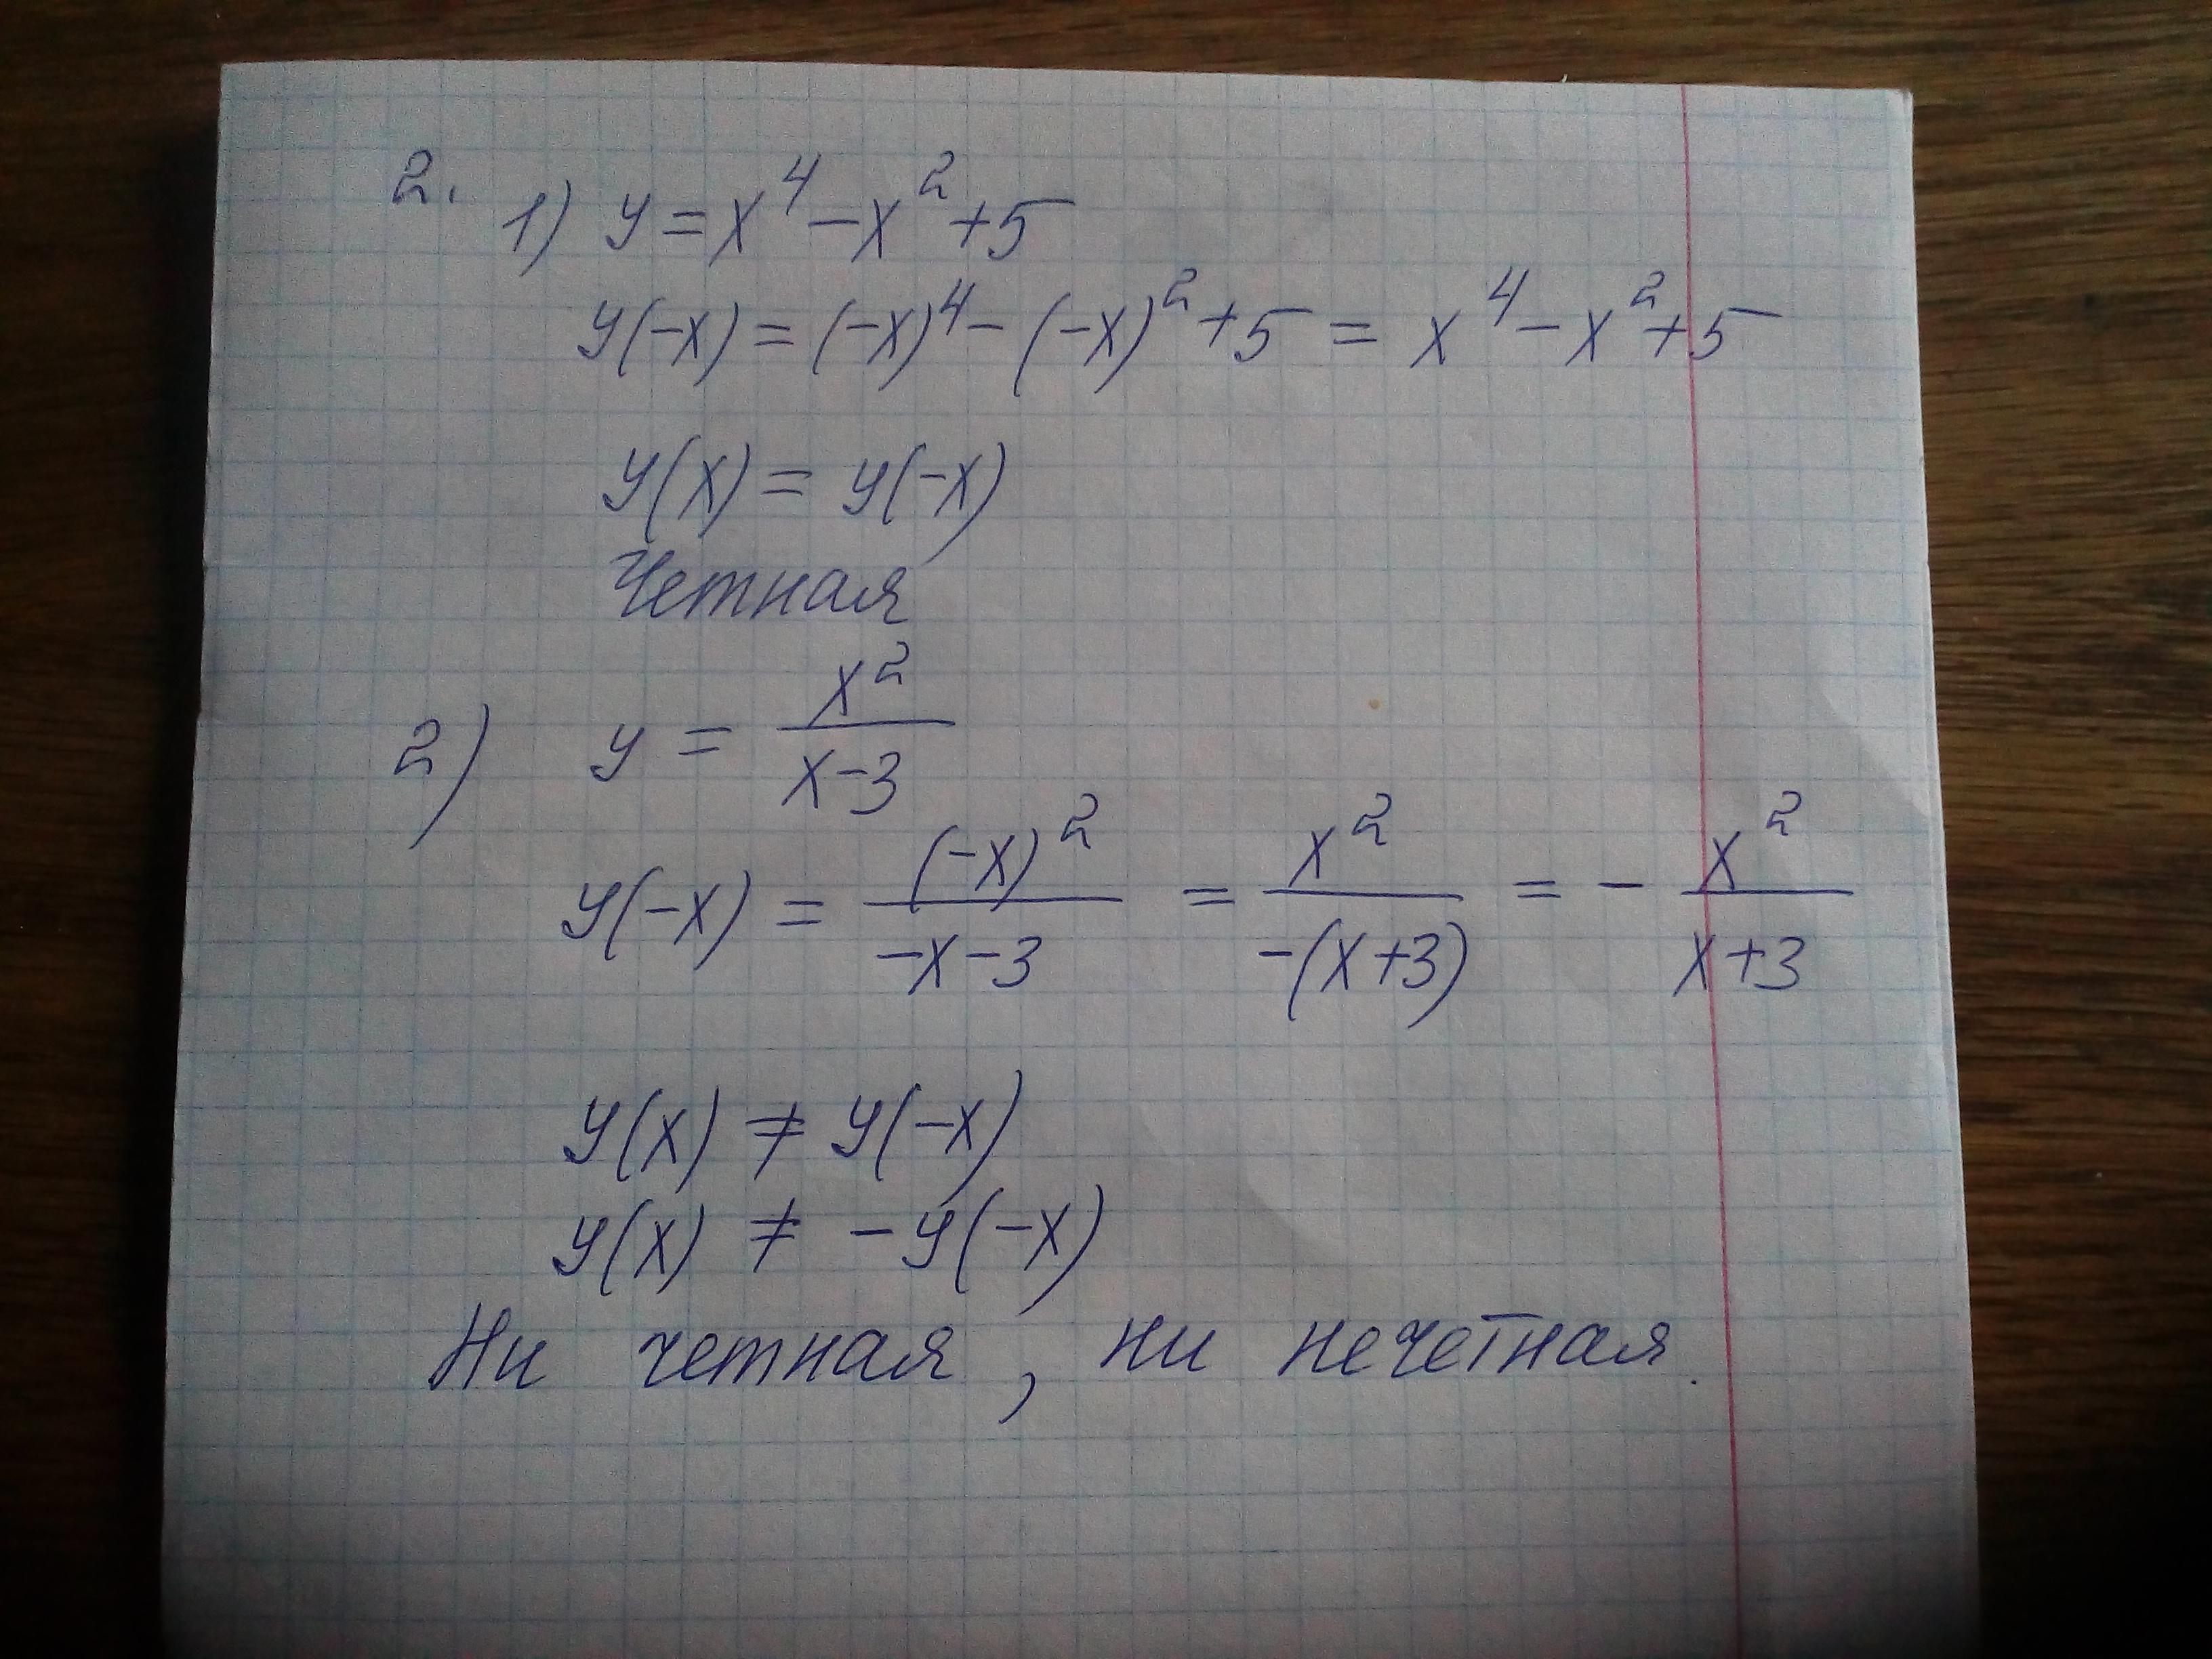 2. 1) y = x⁴ – x² + 5
y(–x) = (–x)⁴ – (–x)² + 5 = x⁴ – x² + 5
y(x) = y(–x)
Четная
2) y = x² / (x–3)
y(–x) = (–x)² / (–x–3) = x² / (–(x+3)) = – x² / (x+3)
y(x) ≠ y(–x)
y(x) ≠ –y(–x)
Ни четная, ни нечетная.